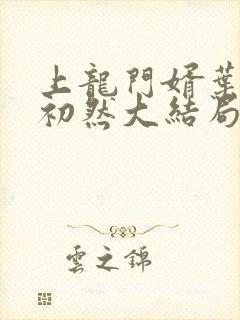 上龍門婿葉
初然大結局
雲之錦